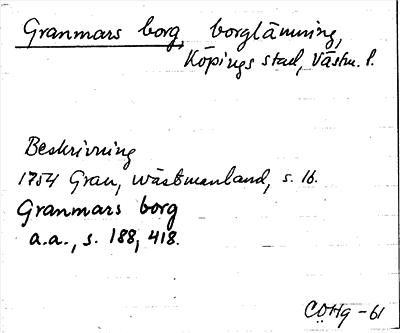 Granmars borg, borglämning,
Köpings stad, Västm. l.
Beskrivning
1754 Grau, Wästmanland, s. 16.
Granmars borg
a.a., s. 188, 418.
CÖHg -61